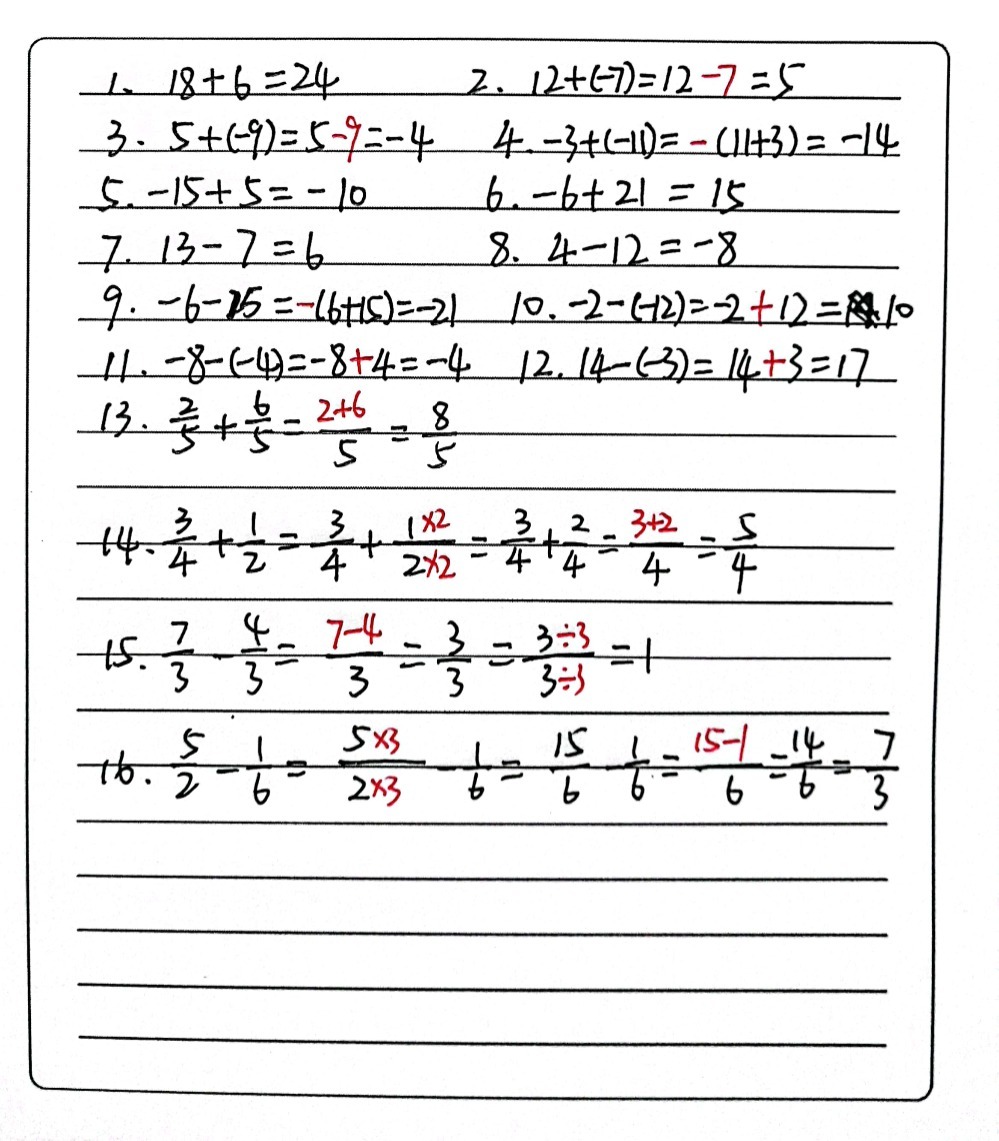 1. 18+6=24 2. 12+(-7)=12-7=5
3. 5+(-9)=5-9=-4 4. -3+(-11)=-(11+3)=-14
5. -15+5=-10 6. -6+21=15
7. 13-7=6 8. 4-12=-8
9. -6-15=-(6+15)=-21 10. -2-(-12)=-2+12=10
11. -8-(-4)=-8+4=-4 12. 14-(-3)=14+3=17
13. 2/5+6/5=(2+6)/5=8/5
14. 3/4+1/2=3/4+(1×2)/(2×2)=3/4+2/4=(3+2)/4=5/4
15. 7/3-4/3=(7-4)/3=3/3=(3÷3)/(3÷3)=1
16. 5/2-1/6=(5×3)/(2×3)-1/6=15/6-1/6=(15-1)/6=14/6=7/3